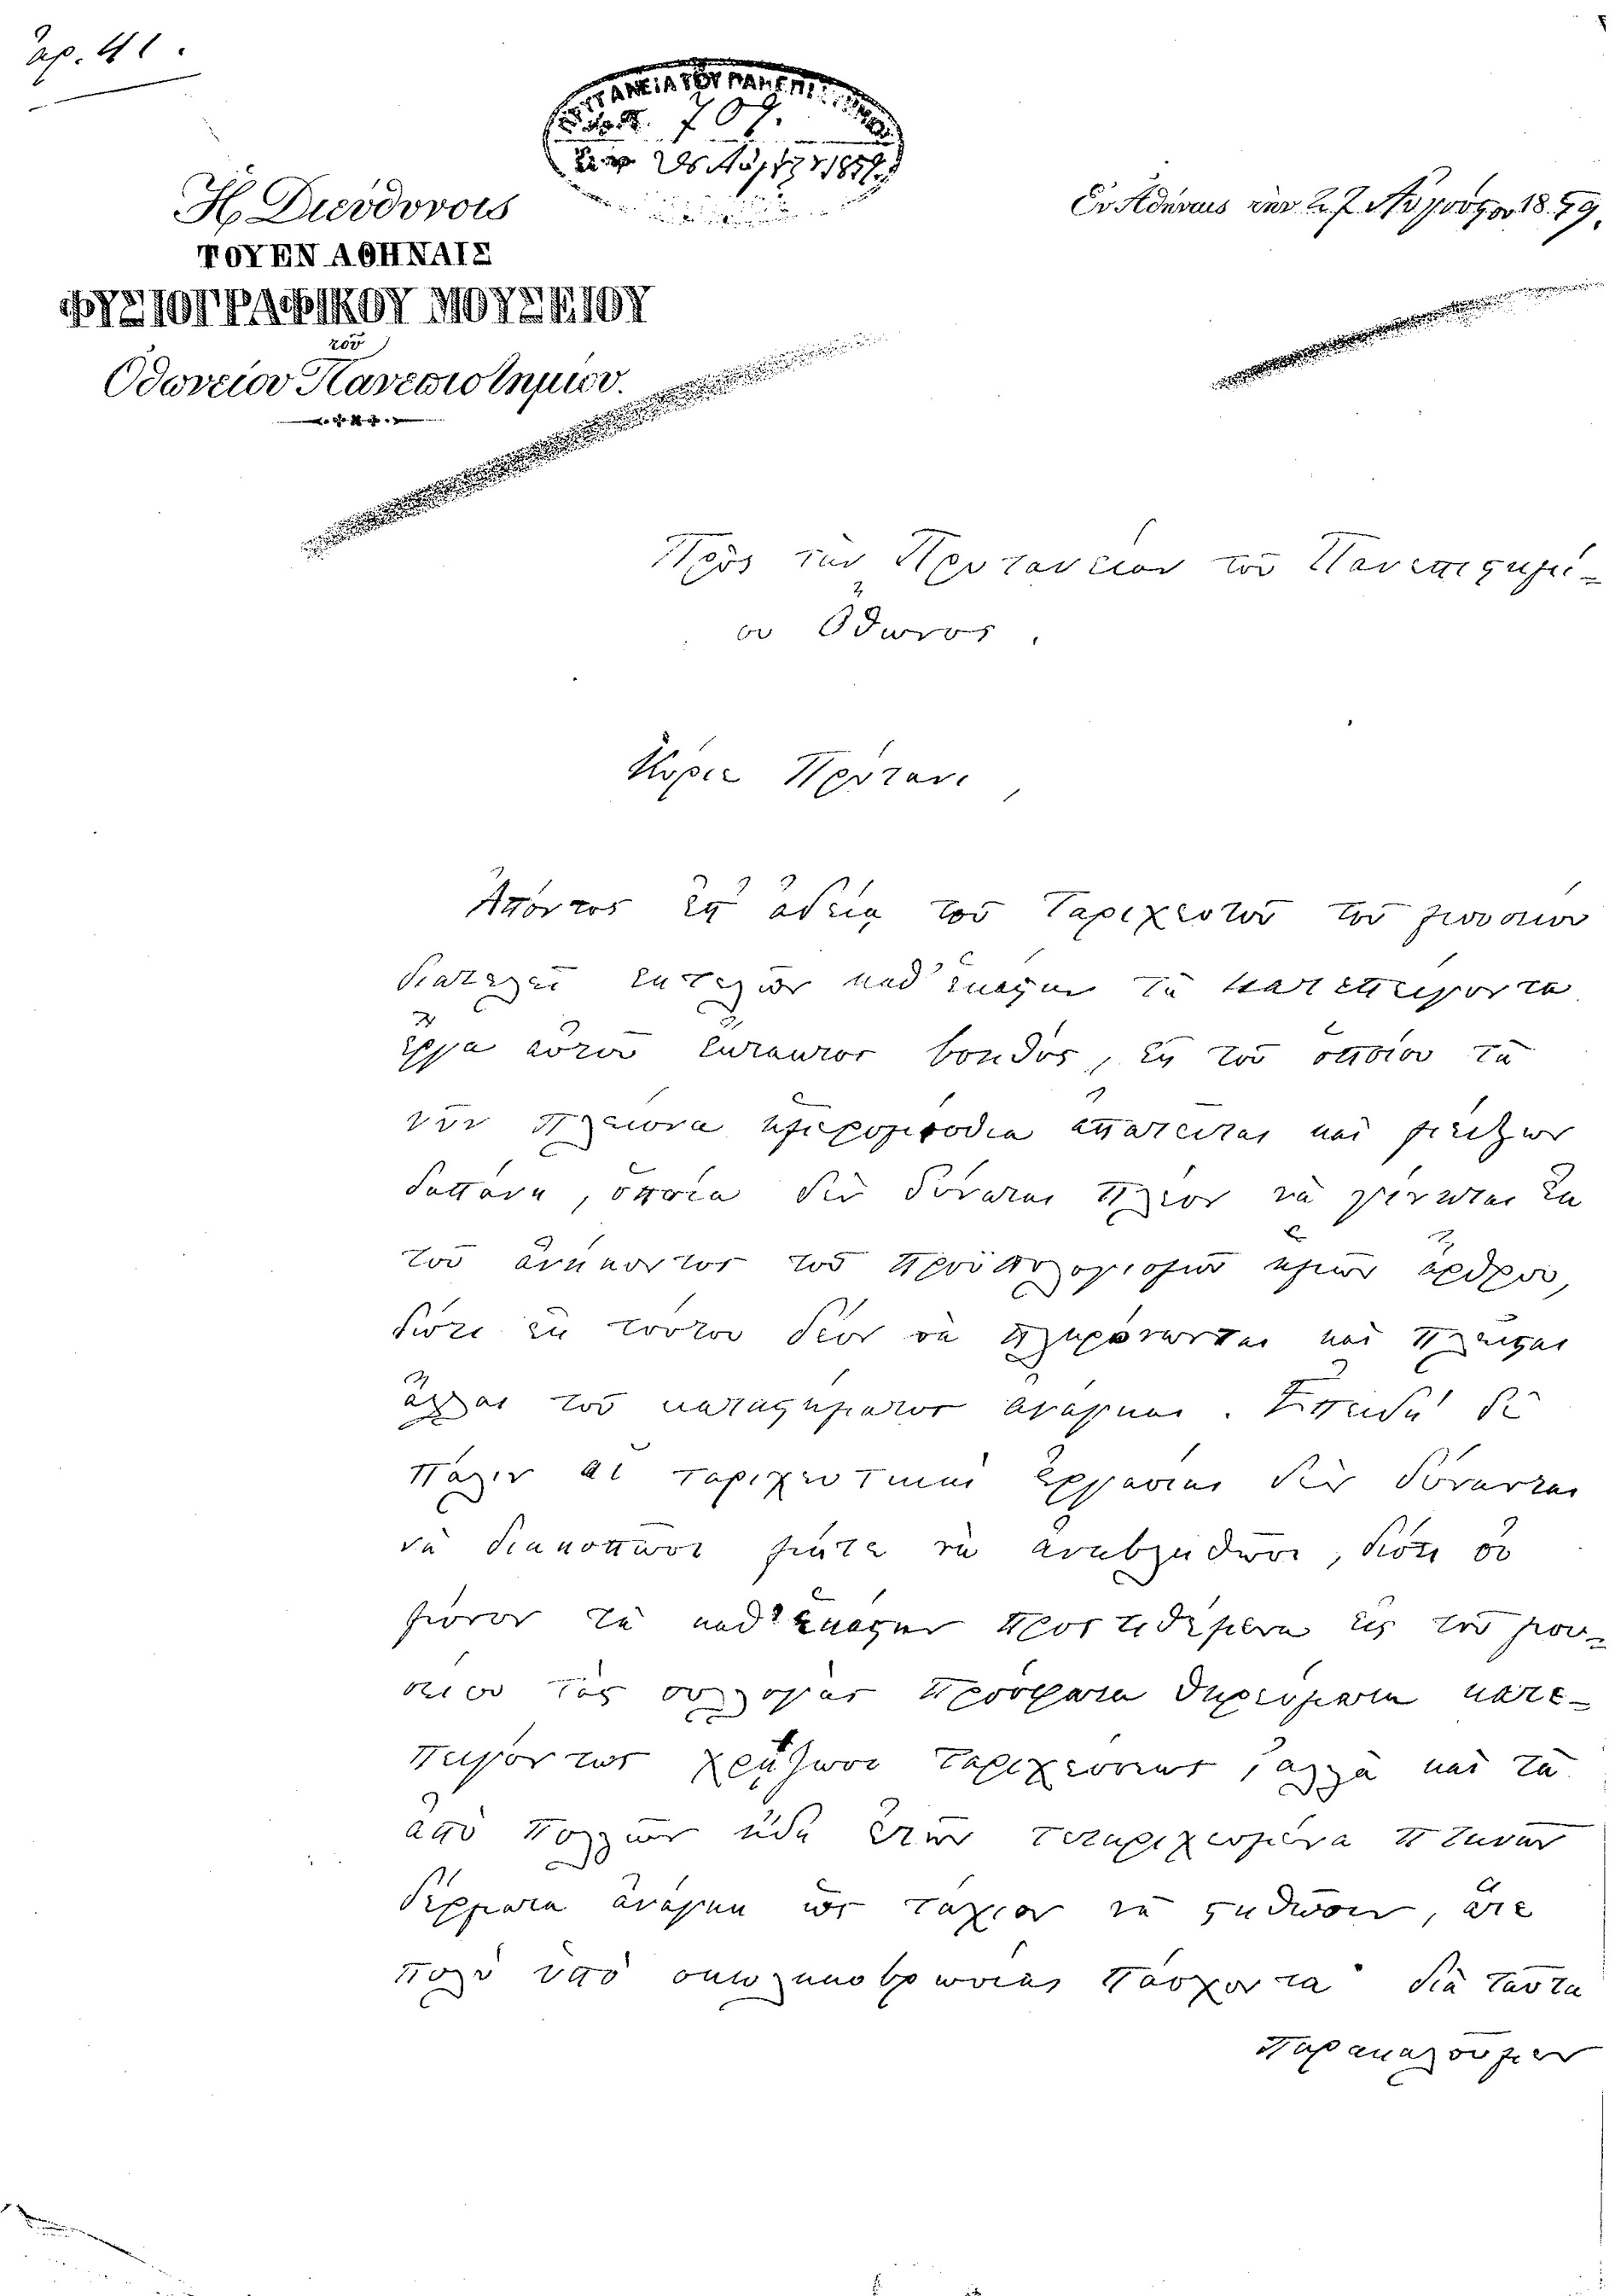 ἀρ. 41.
ΠΡΥΤΑΝΕΙΑ ΤΟΥ ΠΑΝΕΠΙ
709.
28 Αὐγ 1879
Ἡ Διεύθυνσις
ΤΟΥ ΕΝ ΑΘΗΝΑΙΣ
ΦΥΣΙΟΓΡΑΦΙΚΟΥ ΜΟΥΣΕΙΟΥ
τοῦ
Ὀθωνείου Πανεπιστημίου.
Ἐν Ἀθήναις τὴν 27 Αὐγούστου 1879.
Πρὸς τὴν Πρυτανείαν τοῦ Πανεπιστημί-
ου Ὄθωνος.
Κύριε Πρύτανι,
Ἀπόντος ἐπ' ἀδείᾳ τοῦ Ταριχευτοῦ τοῦ μουσείου
διατελεῖ ἐκτελῶν καθ' ἑκάστην τὰ κατεπείγοντα
ἔργα αὐτοῦ βοηθός, ἐφ' τοῦ ὁποίου τὰ
νῦν πλείονα ἡμερομίσθια ἀπαιτεῖται καὶ μείζων
δαπάνη, ὁποία δὲν δύναται πλέον νὰ γίνηται ἐκ
τοῦ ἀνήκοντος τοῦ προϋπολογισμοῦ ἡμῶν ἄρθρου,
διότι ἐκ τούτου δέον νὰ πληρόνωνται καὶ πλεῖσται
ἄλλαι τοῦ καταστήματος ἀνάγκαι. Ἐπειδὴ δὲ
πάλιν αἱ ταριχευτικαὶ ἐργασίαι δὲν δύνανται
νὰ διακοπῶσι μήτε νὰ ἀναβληθῶσι, διότι οὐ
μόνον τὰ καθ' ἑκάστην προστιθέμενα εἰς τοῦ μου-
σείου τὰς συλλογὰς πρόσφατα θηρεύματα κατε-
πειγόντως χρῄζουσι ταριχεύσεως, ἀλλὰ καὶ τὰ
ἀπὸ πολλῶν ἤδη ἐτῶν τεταριχευμένα πτηνῶν
δέρματα ἀνάγκη ὡς τάχιον νὰ στηθῶσιν, ἅτε
πολὺ ὑπὸ σκωληκοβρωσίας πάσχοντα· διὰ ταῦτα
παρακαλοῦμεν